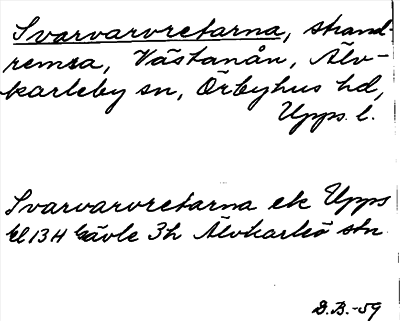 Svarvarvretarna, strand-
remsa, Västanån, Älv-
karleby sn, Örbyhus hd,
Upps. l.
Svarvarvretarna ek Upps
El 13 H Gävle 3h Älvkarleö stn
D.B.-59